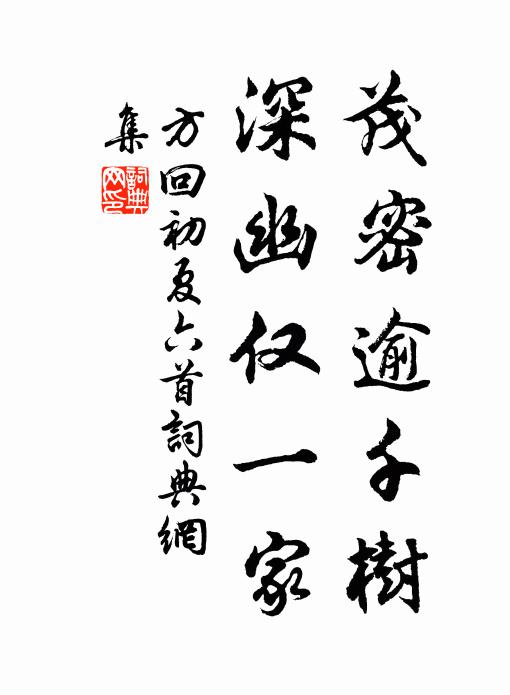 茂密逾千樹
深幽仅一家
方回初夏六首詞典網
集
詞典
网印